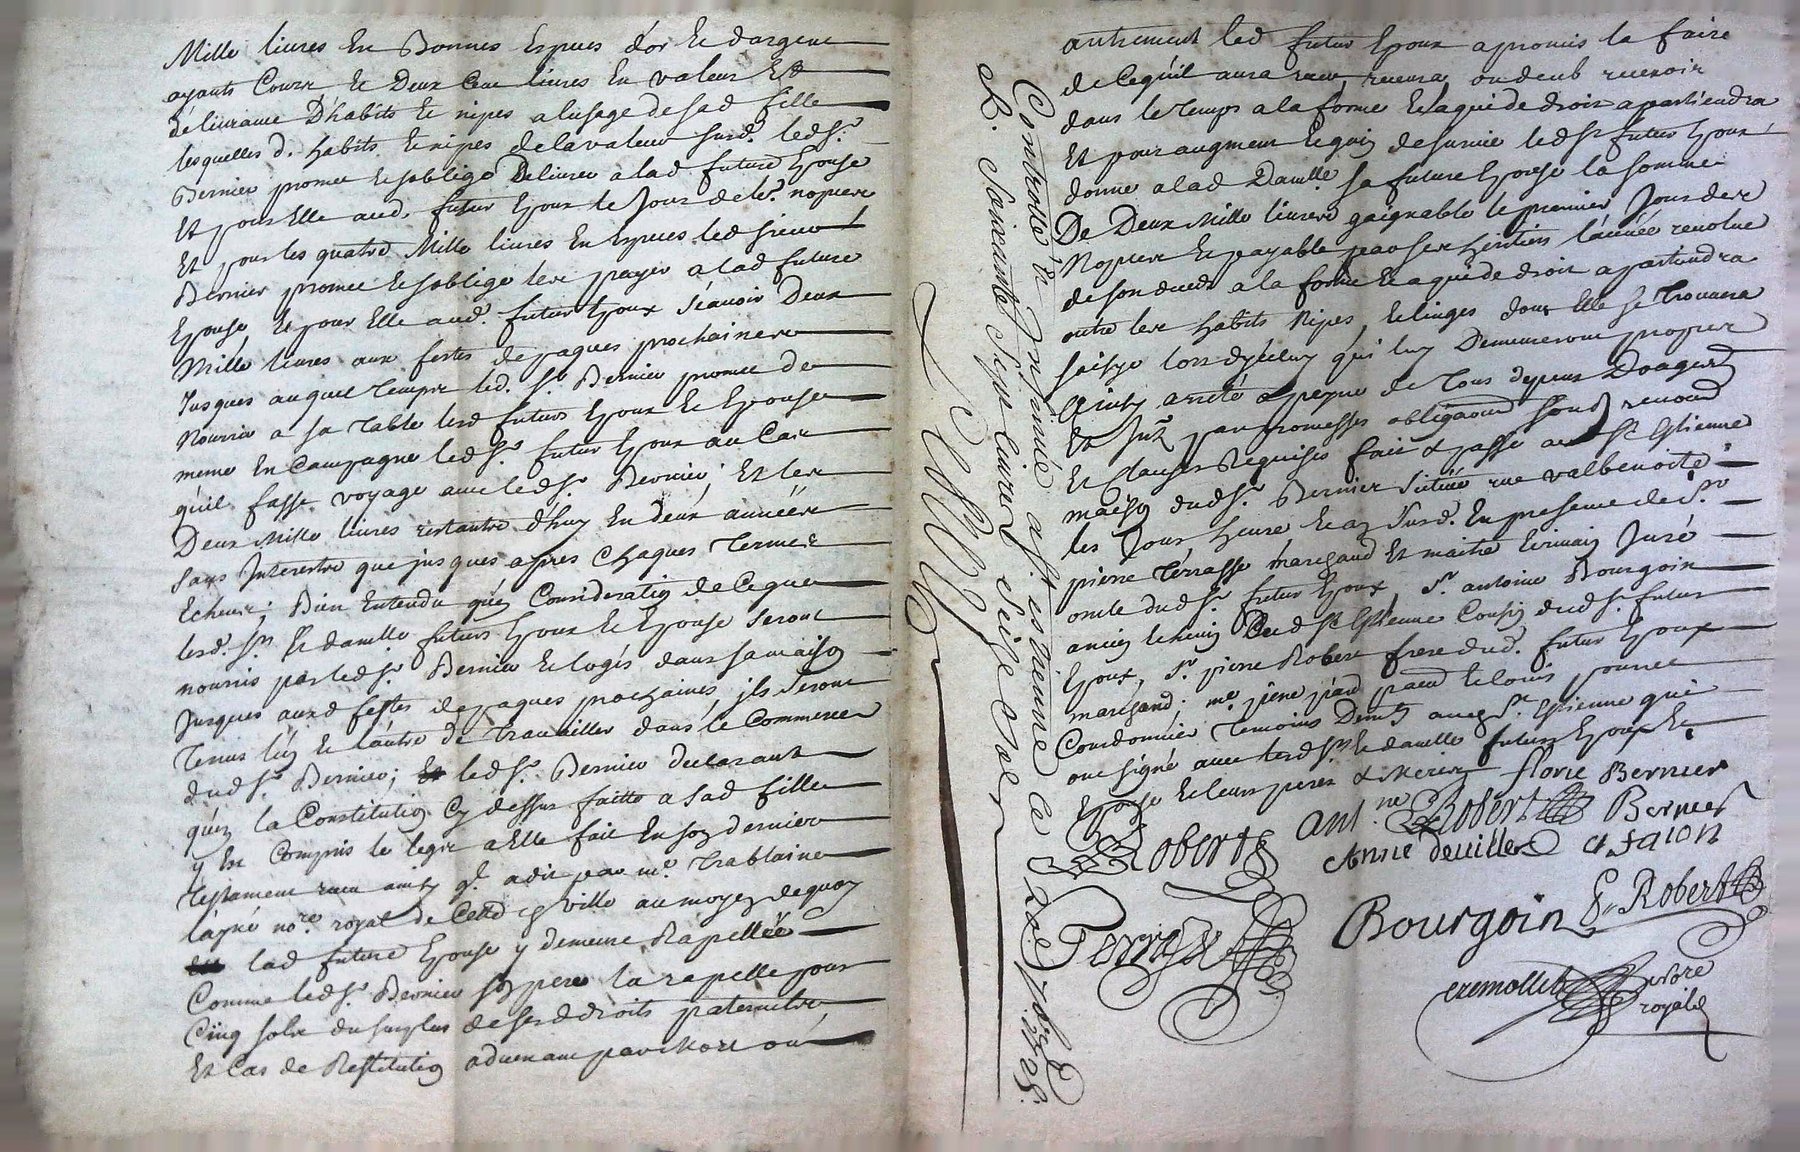 Mille livres En Bonnes Especes d'or Et dargent
ayants Cours Et Deux Cent livres En valeur Et
délivrance D'habits Et nipes a lusage de sad fille
lesquelles d. habits Et nipes de la valeur susd. led Sr.
Bernier promet Et soblige Delivrer a lad future Epouse
Et pour Elle aud. futur Epoux le Jour de le. nopces
Et pour les quatre Mille livres En Especes led sieur
Bernier promet Et soblige les payer a lad future
Epouse, Et pour Elle aud. futur Epoux scavoir Deux
Mille livres aux festes de paques prochaines
Jusques auquel temps led. Sr. Bernier promet de
Nourrir a sa Table lesd futurs Epoux Et Epouse
meme En Campagne led Sr. futur Epoux au Cas
qu'il fasse voyage avec led Sr. Bernier; Et les
Deux Mille livres restantes d'huy En deux années
sans Interestre que jusques apres Chaques Termes
Echeus; Bien Entendu qu'en Consideration de Ceque
lesd. Srs Et damlle futurs Epoux Et Epouse Seront
nourris par led Sr. Bernier Et logés dans sa maison
Jusques auxd festes de paques prochaines, jls Seront
Tenus l'un Et l'autre de travailler dans le Commerce
dud Sr. Bernier; led Sr. Bernier declarant
qu'en la Constitution Cy dessus faitte a Sad fille
y Est Compris le legs a Elle fait En son dernier
Testament receu ainsy q. a dit par me. Trablaine
layné nore. royal de Cette ville au moyen dequoy
lad future Epouse y demeure Rapellée
Comme led Sr. Bernier son pere la rapelle pour
Cinq sols du surplus de sesd droits paternels,
Et Cas de Restitution advenant par Mort ou
Controllé & Insinué a St. estienne le
R. Soixante Sept Livres seize sols
autrement led futur Epoux a promis la faire
de Ceqüil aura receu, recevra, ou deub recevoir
dans le temps a la forme Et a qui de droit apartiendra
Et pour augment Et gain de survie led Sr futur Epoux
donne a lad Damlle. sa future Epouse la somme
De Deux Mille livres gaignable le premier Jour des
Nopces Et payable par ses heritiers l'année revolue
de son deceds a la forme Et a qui de droit apartiendra
outre les habits Nipes, Et linges dont Elle se Trouvera
saisye lors d'jceluy qui luy Demeureront propres
Ainsy arreté a peyne de Tous depens Domages
Et par promesses obligaons renond
Et clauses Requises fait & passé aud St Estienne
maison dud Sr. Bernier scituée rue valbenoite
les Jour heure Et an Susd. En presence de Sr.
pierre Terrasse marchand Et maitre Ecrivain Juré
oncle dud Sr. futur Epoux, Sr. antoine Bourgoin
ancien Echevin dud St Estienne Cousin dud Sr. futur
Epoux, Sr. pierre Robert frere dud. futur Epoux
marchand. me. Et louis
Courdonnier Temoins Demts aud St. Estienne qui
ont signé avec lesd Srs Et damlle futurs Epoux Et
Epouse Et leurs peres & Meres florie Bernier
Robert Antne Robert Bernier
Anne devilles
Terrasse Bourgoin P. Robert
notre
royal